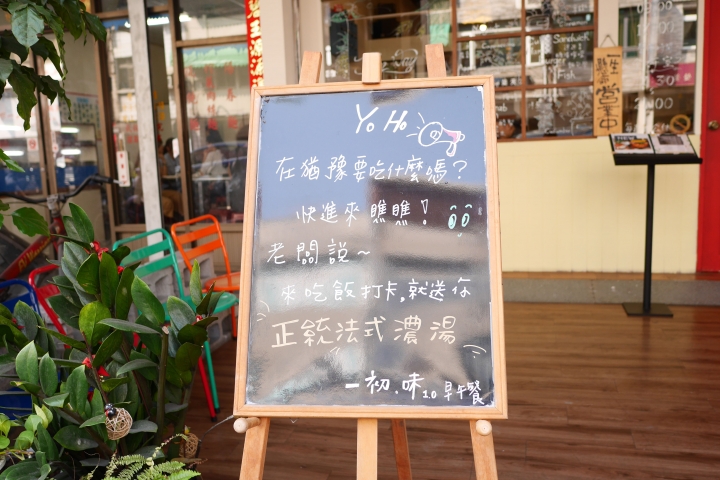 Yo Ho
在猶豫要吃什麼嗎？
快進來瞧瞧！
老闆說～
來吃飯打卡,就送你
正統法式濃湯
一初.味2.0早午餐
營業中